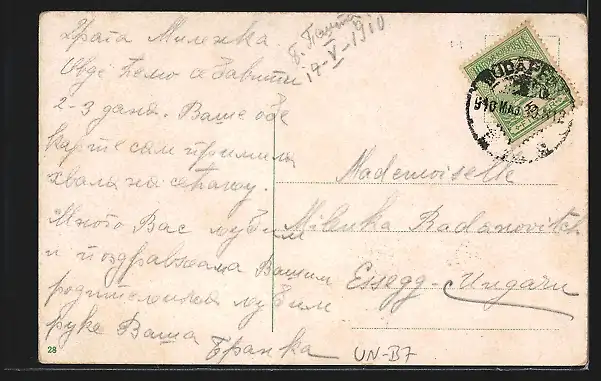 Драга Миленка.
Овде ћемо се бавити
2-3 дана. Ваше обе
карте сам примила
хвала на сећању.
Много Вас љубим
и поздрављама Вашим
родитељима љубим
руке Ваша
Бранка
Б. Пешта
17-V-1910
BUDAPEST
910 MAJ
Mademoiselle
Milenka Radanovitch
Essegg-Ungarn
28
UN-B7